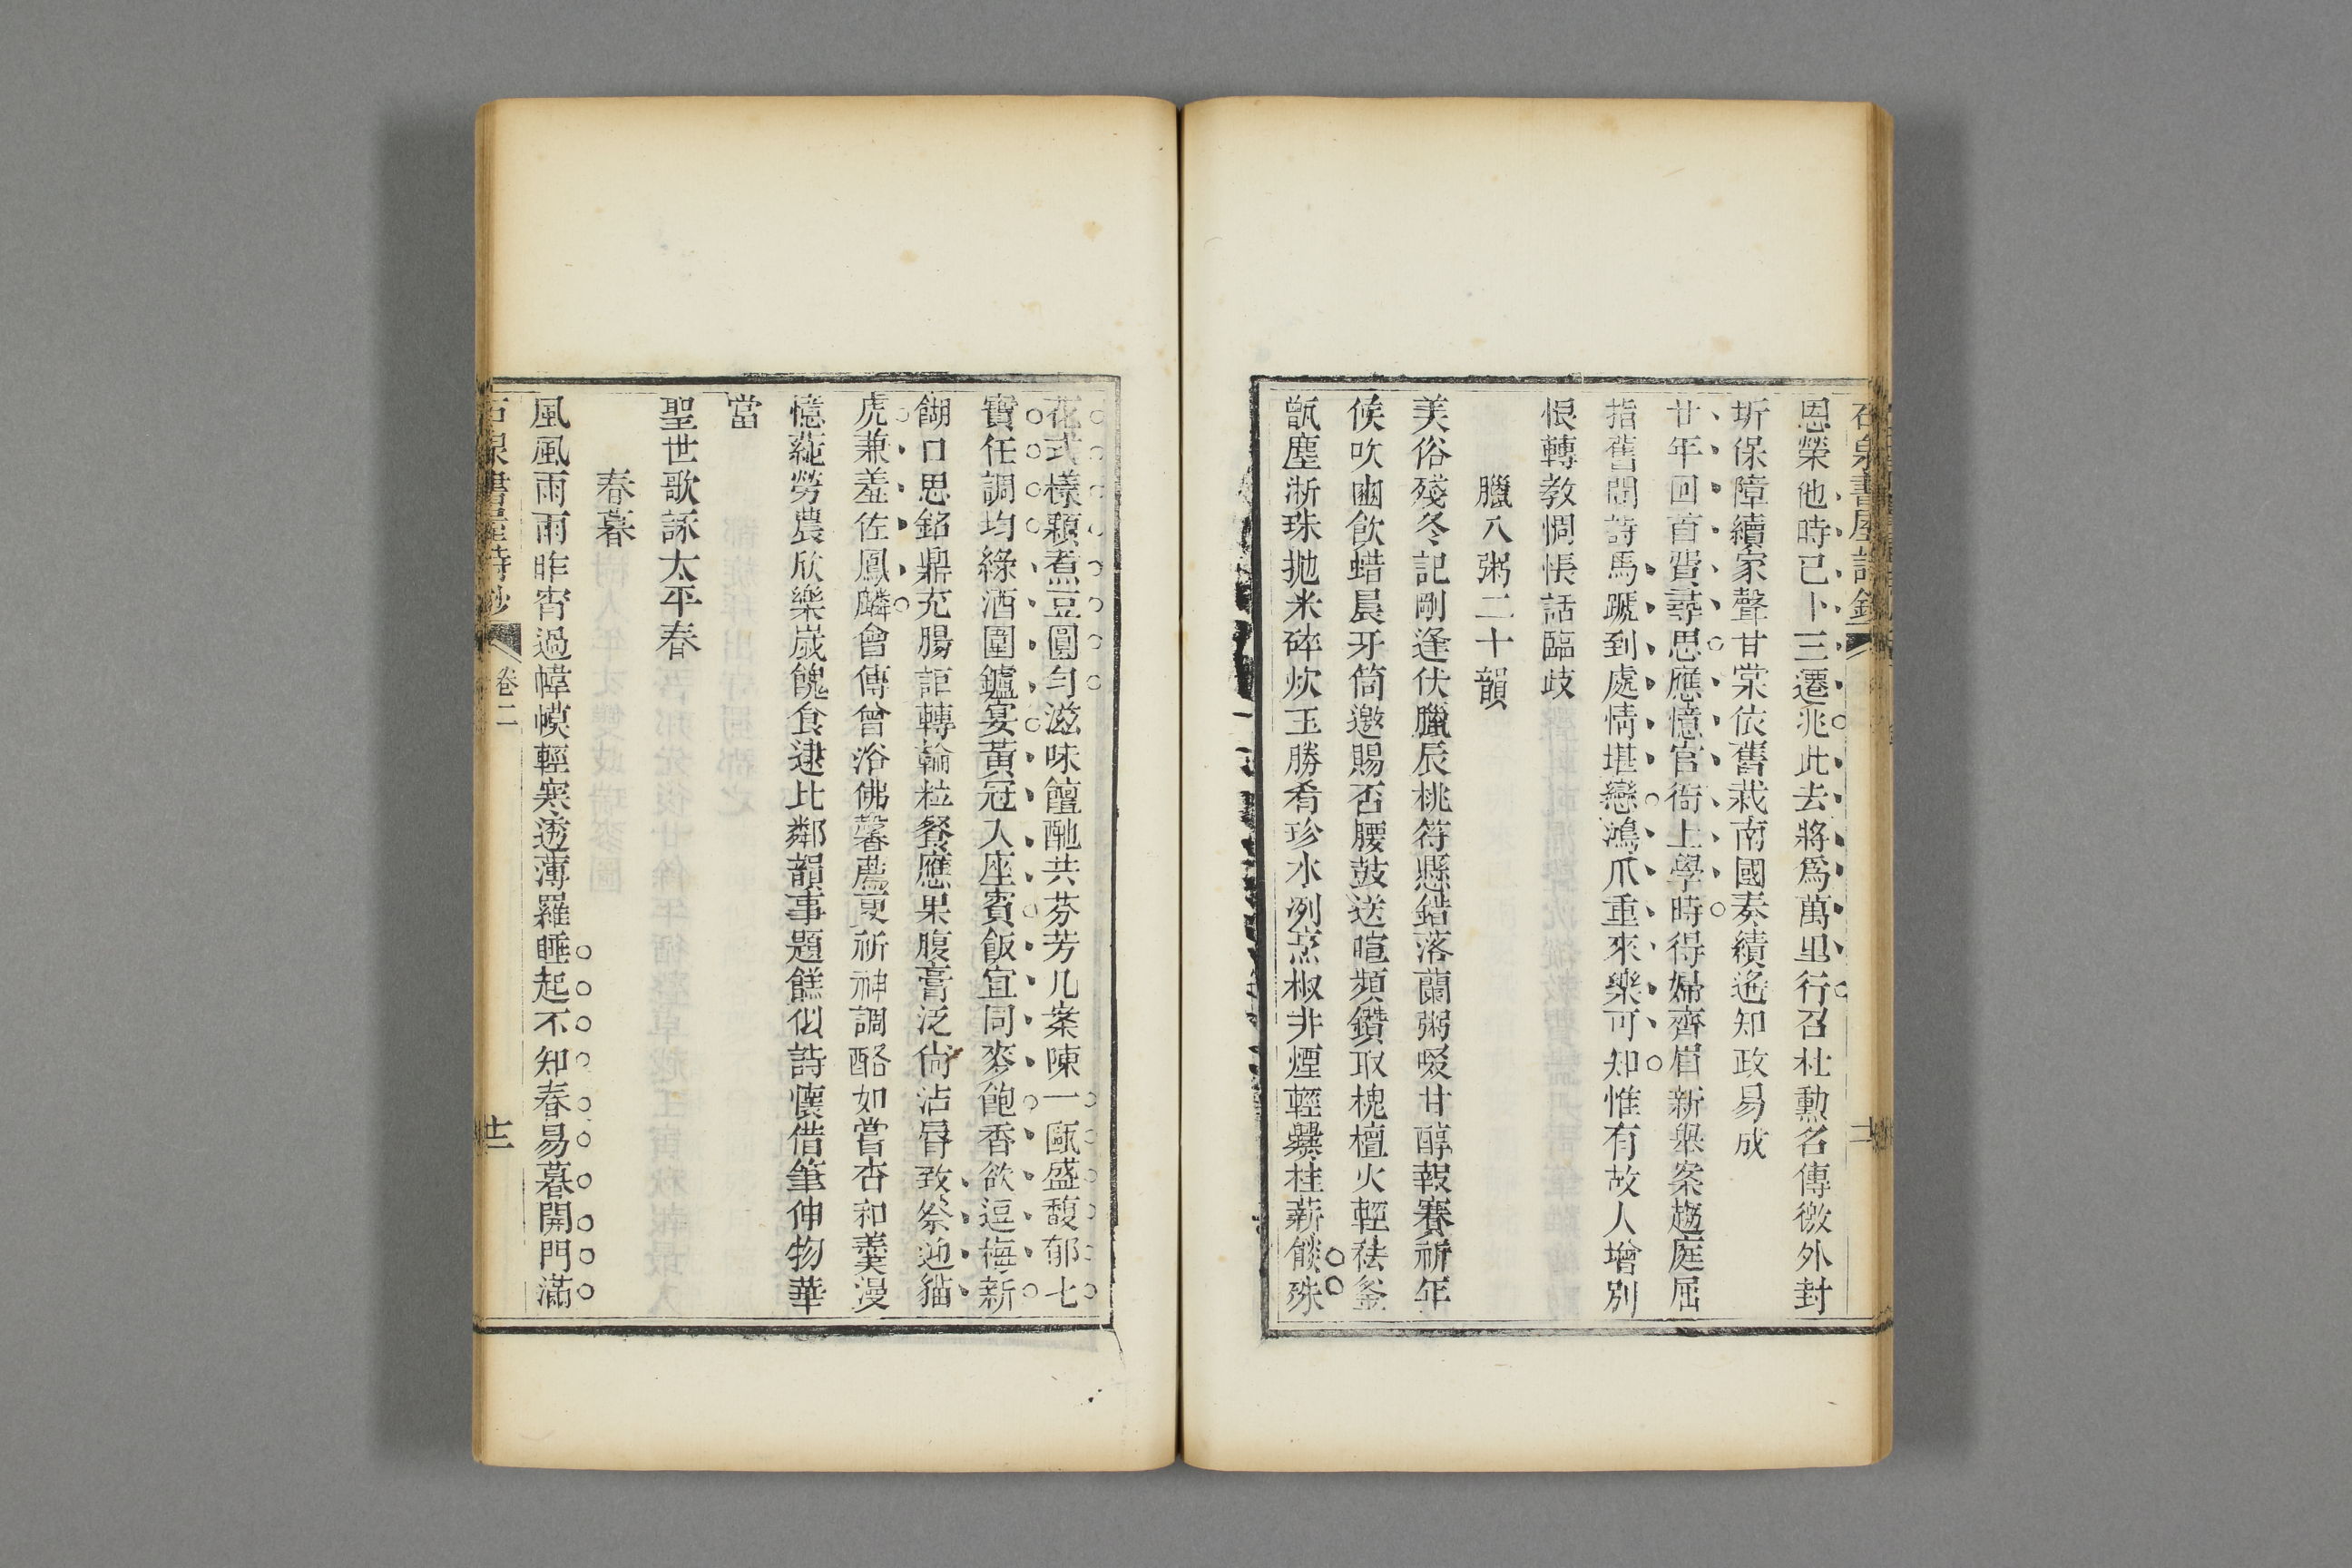 石泉書屋詩鈔
恩榮他時已卜三遷兆此去將爲萬里行召杜勳名傳徼外封
圻保障續家聲甘棠依舊栽南國奏績遙知政易成
廿年回首費尋思應憶官衙上學時得婦齊眉新舉案趨庭屈
指舊聞詩馬蹏到處情堪戀鴻爪重來樂可知惟有故人增別
恨轉教惆悵話臨歧
臘八粥二十韻
美俗殘冬記剛逢伏臘辰桃符懸錯落蘭粥啜甘醇報賽祈年
候吹豳飲蜡晨牙筒邀賜否腰鼓送喧頻鑽取槐檀火輕祛釜
甑塵淅珠拋米碎炊玉勝肴珍水冽烹椒非煙輕爨桂薪餤殊
花式樣顆煮豆圓勻滋味饘酏共芬芳几案陳一甌盛馥郁七
寶任調均綠酒圍鑪宴黃冠入座賓飯宜同麥飽香欲逗梅新
餬口思銘鼎充腸詎轉輪粒餐應果腹膏泛尙沾脣致祭迎貓
虎兼羞佐鳳麟會傳曾浴佛馨薦更祈神調酪如嘗杏和羹漫
憶蓴勞農欣樂嵗餽食逮比鄰韻事題餻似詩懷借筆伸物華
當
聖世歌詠太平春
春暮
風風雨雨昨宵過幃幙輕寒透薄羅睡起不知春易暮開門滿
石泉書屋詩鈔 卷二 十二